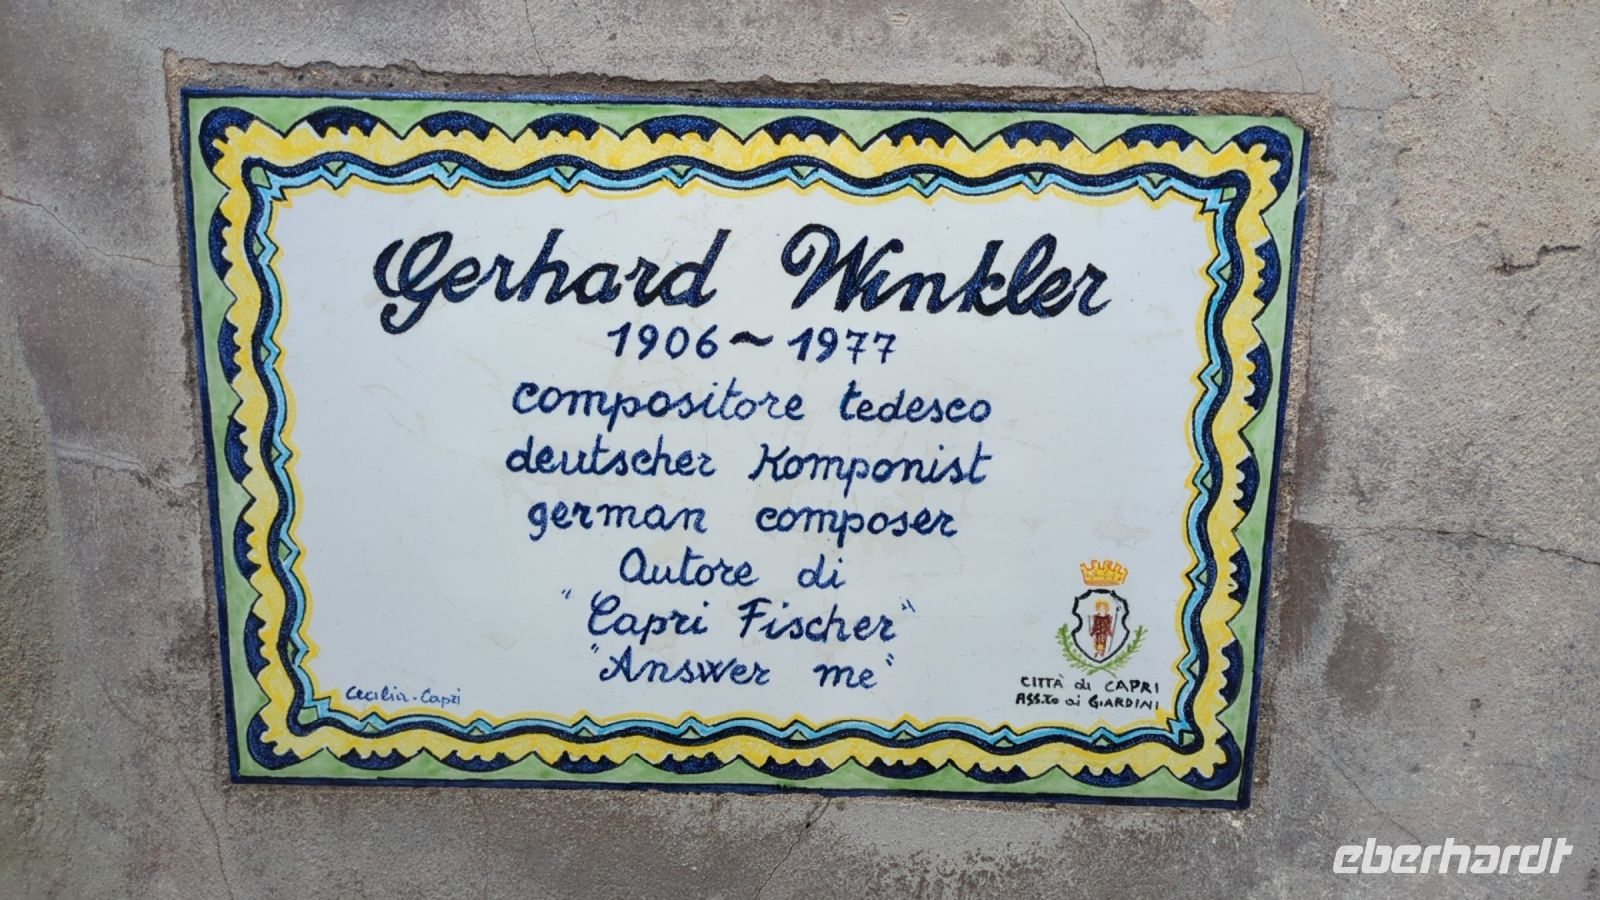 Gerhard Winkler
1906 ~ 1977
compositore tedesco
deutscher Komponist
german composer
Autore di
"Capri Fischer"
"Answer me"
Cecilia-Capri
CITTÀ di CAPRI
ASS.to ai GIARDINI
eberhardt